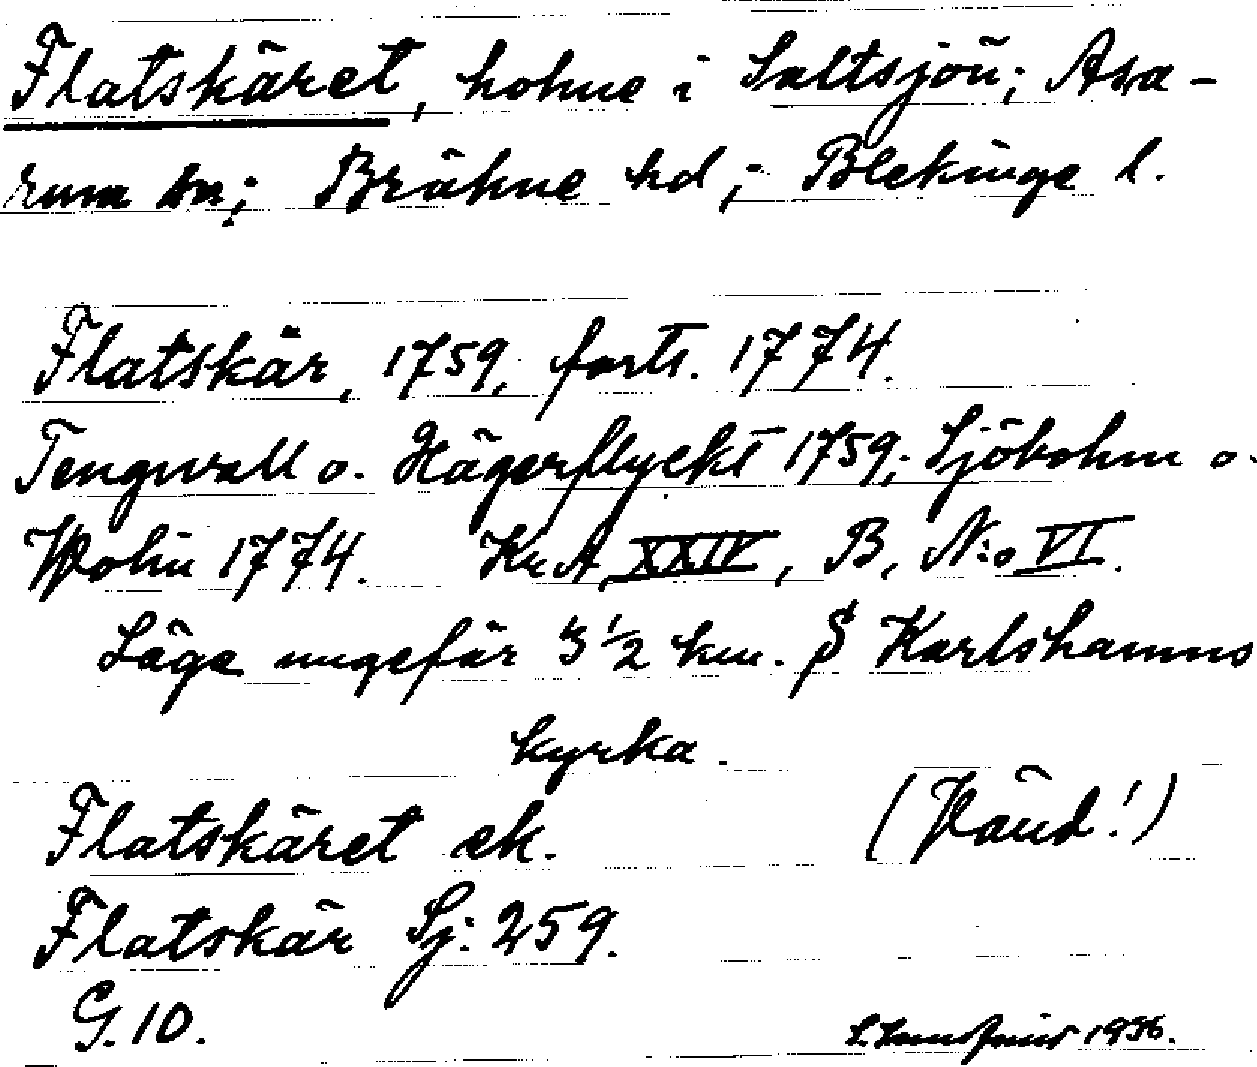 Flatskäret, holme i Saltsjön; Asa-
rum sn; Bräkne hd; Blekinge l.
Flatskär, 1759, forts. 1774.
Tengwall o. Hägerflyckt 1759; Sjöbohm o.
Wolin 1774. Kr.A XXIV, B, N:o VI.
Läge ungefär 3 1/2 km. S Karlshamns
kyrka.
(Vänd!)
Flatskäret ek.
Flatskär Sj: 259.
G. 10.
1936.